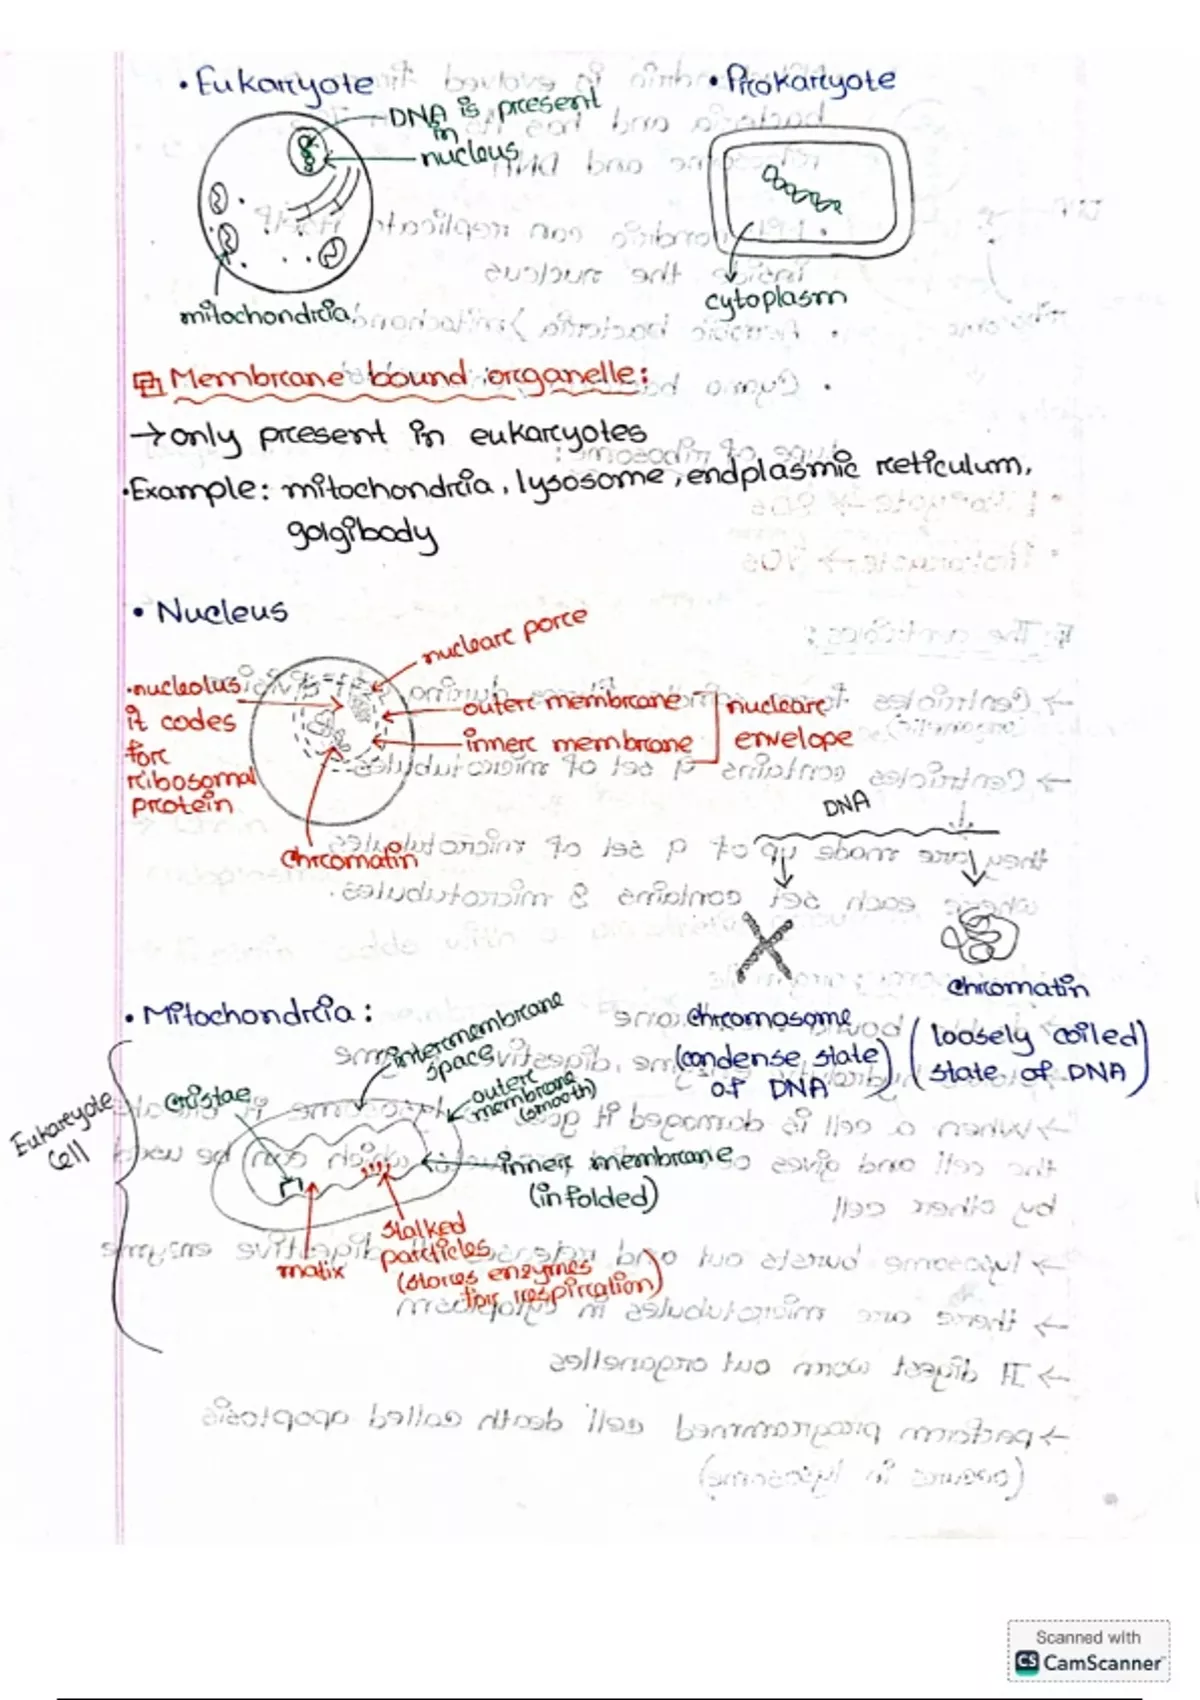 • Eukaryote
• Prokaryote
DNA is present
in
nucleus
mitochondria
cytoplasm
Membrane bound organelle:
→ only present in eukaryotes
•Example: mitochondria, lysosome, endplasmic reticulum,
golgibody
• Nucleus
nuclear pore
•nucleolus
it codes
for
ribosomal
protein
outer membrane
inner membrane
nuclear
envelope
chromatin
DNA
chromosome
(condense state)
of DNA
chromatin
(loosely coiled)
state of DNA
• Mitochondria:
Eukaryote
cell
cristae
intermembrane
space
outer
membrane
(smooth)
inner membrane
(infolded)
matix
stalked
particles
(stores enzymes
for respiration)
Scanned with
CS CamScanner